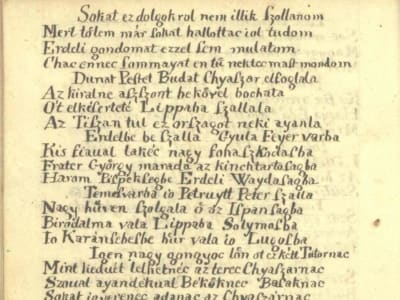 Sokat ez dolgokrol nem illik szollanom
Mert tőlem már sokat hallottac iol tudom
Erdeli gondomat ezzel sem mulatom
Chac ennec summayat en tü nektec mast mondom
Dunat Pestet Budat Chyaszar elfoglala
Az kiralne aszszont bekővel bochata
Őt elkésérteté Lippaba szallala
Az Tiszan tul ez orszagot neki ayanla
Erdelbe be szalla Gyula Feyer varba
Kis fiaual lakéc nagy fohaszkodasba
Frater György marada az kinchtartosagba
Harum Pispeksegbe Erdeli Waydasagba
Temesvarba io Petruytt Peter szalla
Nagy hüven szolgala ő az Ispansagba
Birodalma vala Lippaba Solymosba
Io Karansebesbe hür vala io Lugosba
Igen nagy gongyoc lőn ot ez két Tutornac
Mint keduét lelhetnéc az terec Chyaszarnac
Szaual ayandekual Békóknec Basaknac
Sokat igyerenec adanac az Chyaszárnac